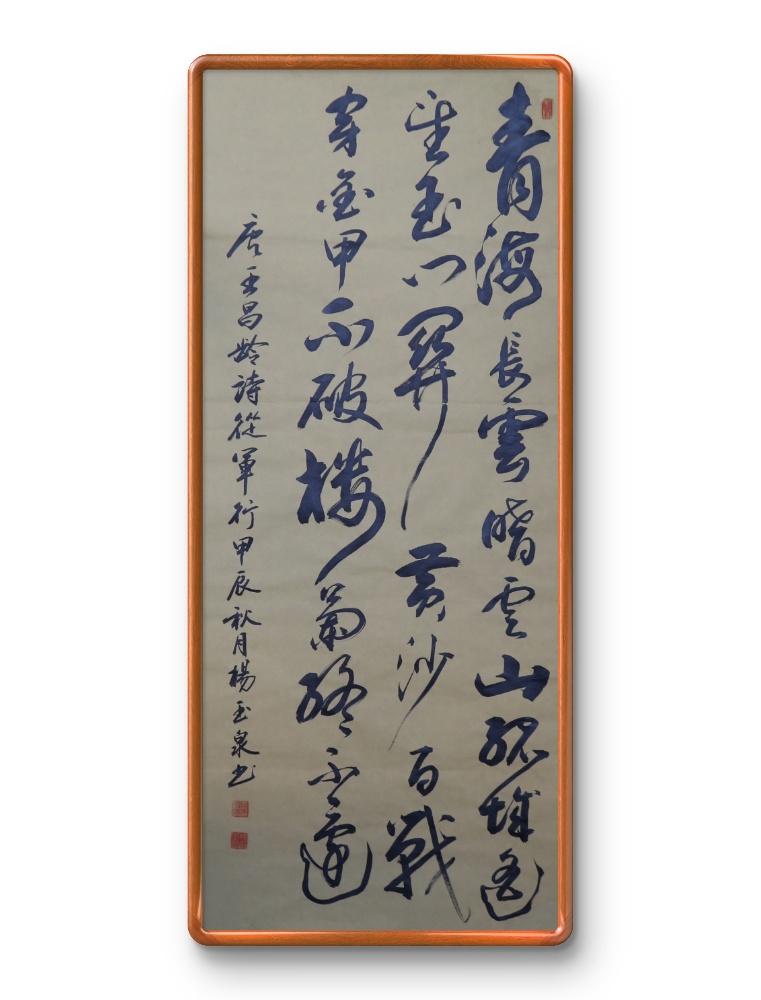 青海長雲暗雪山孤城遙
望玉門關黃沙百戰
穿金甲不破樓蘭終不還
唐王昌齡詩從軍行甲辰秋月楊玉泉书